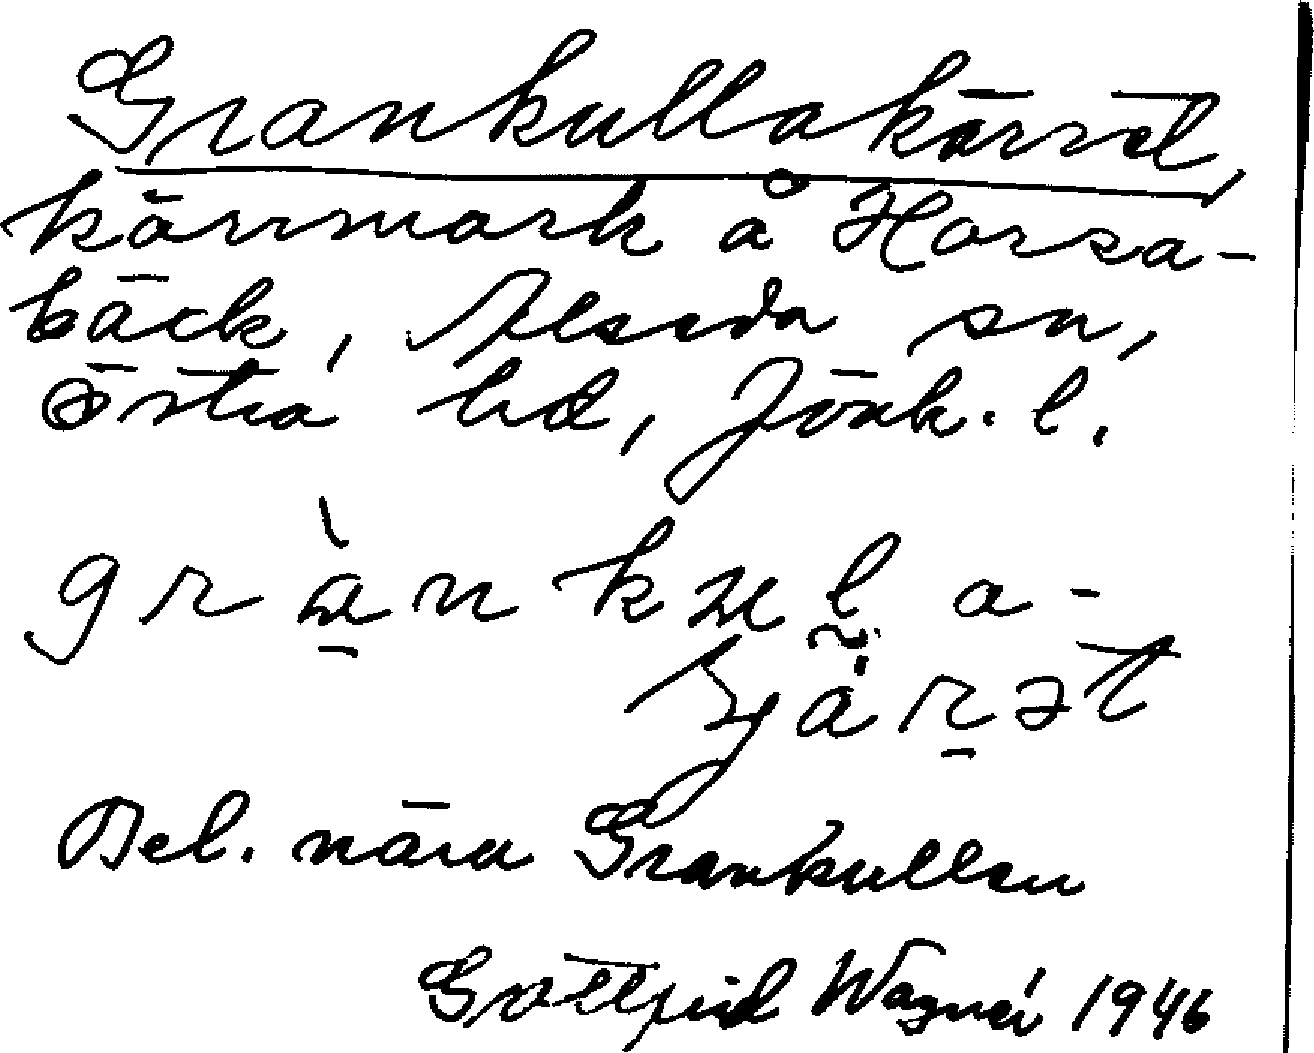 Grankullakärret,
kärrmark å Horsa-
bäck, Alseda sn,
Östra hd, Jönk. l.
grànkulla-
kjärət
Bel. nära Grankullen
Gottfrid Wagnér 1946